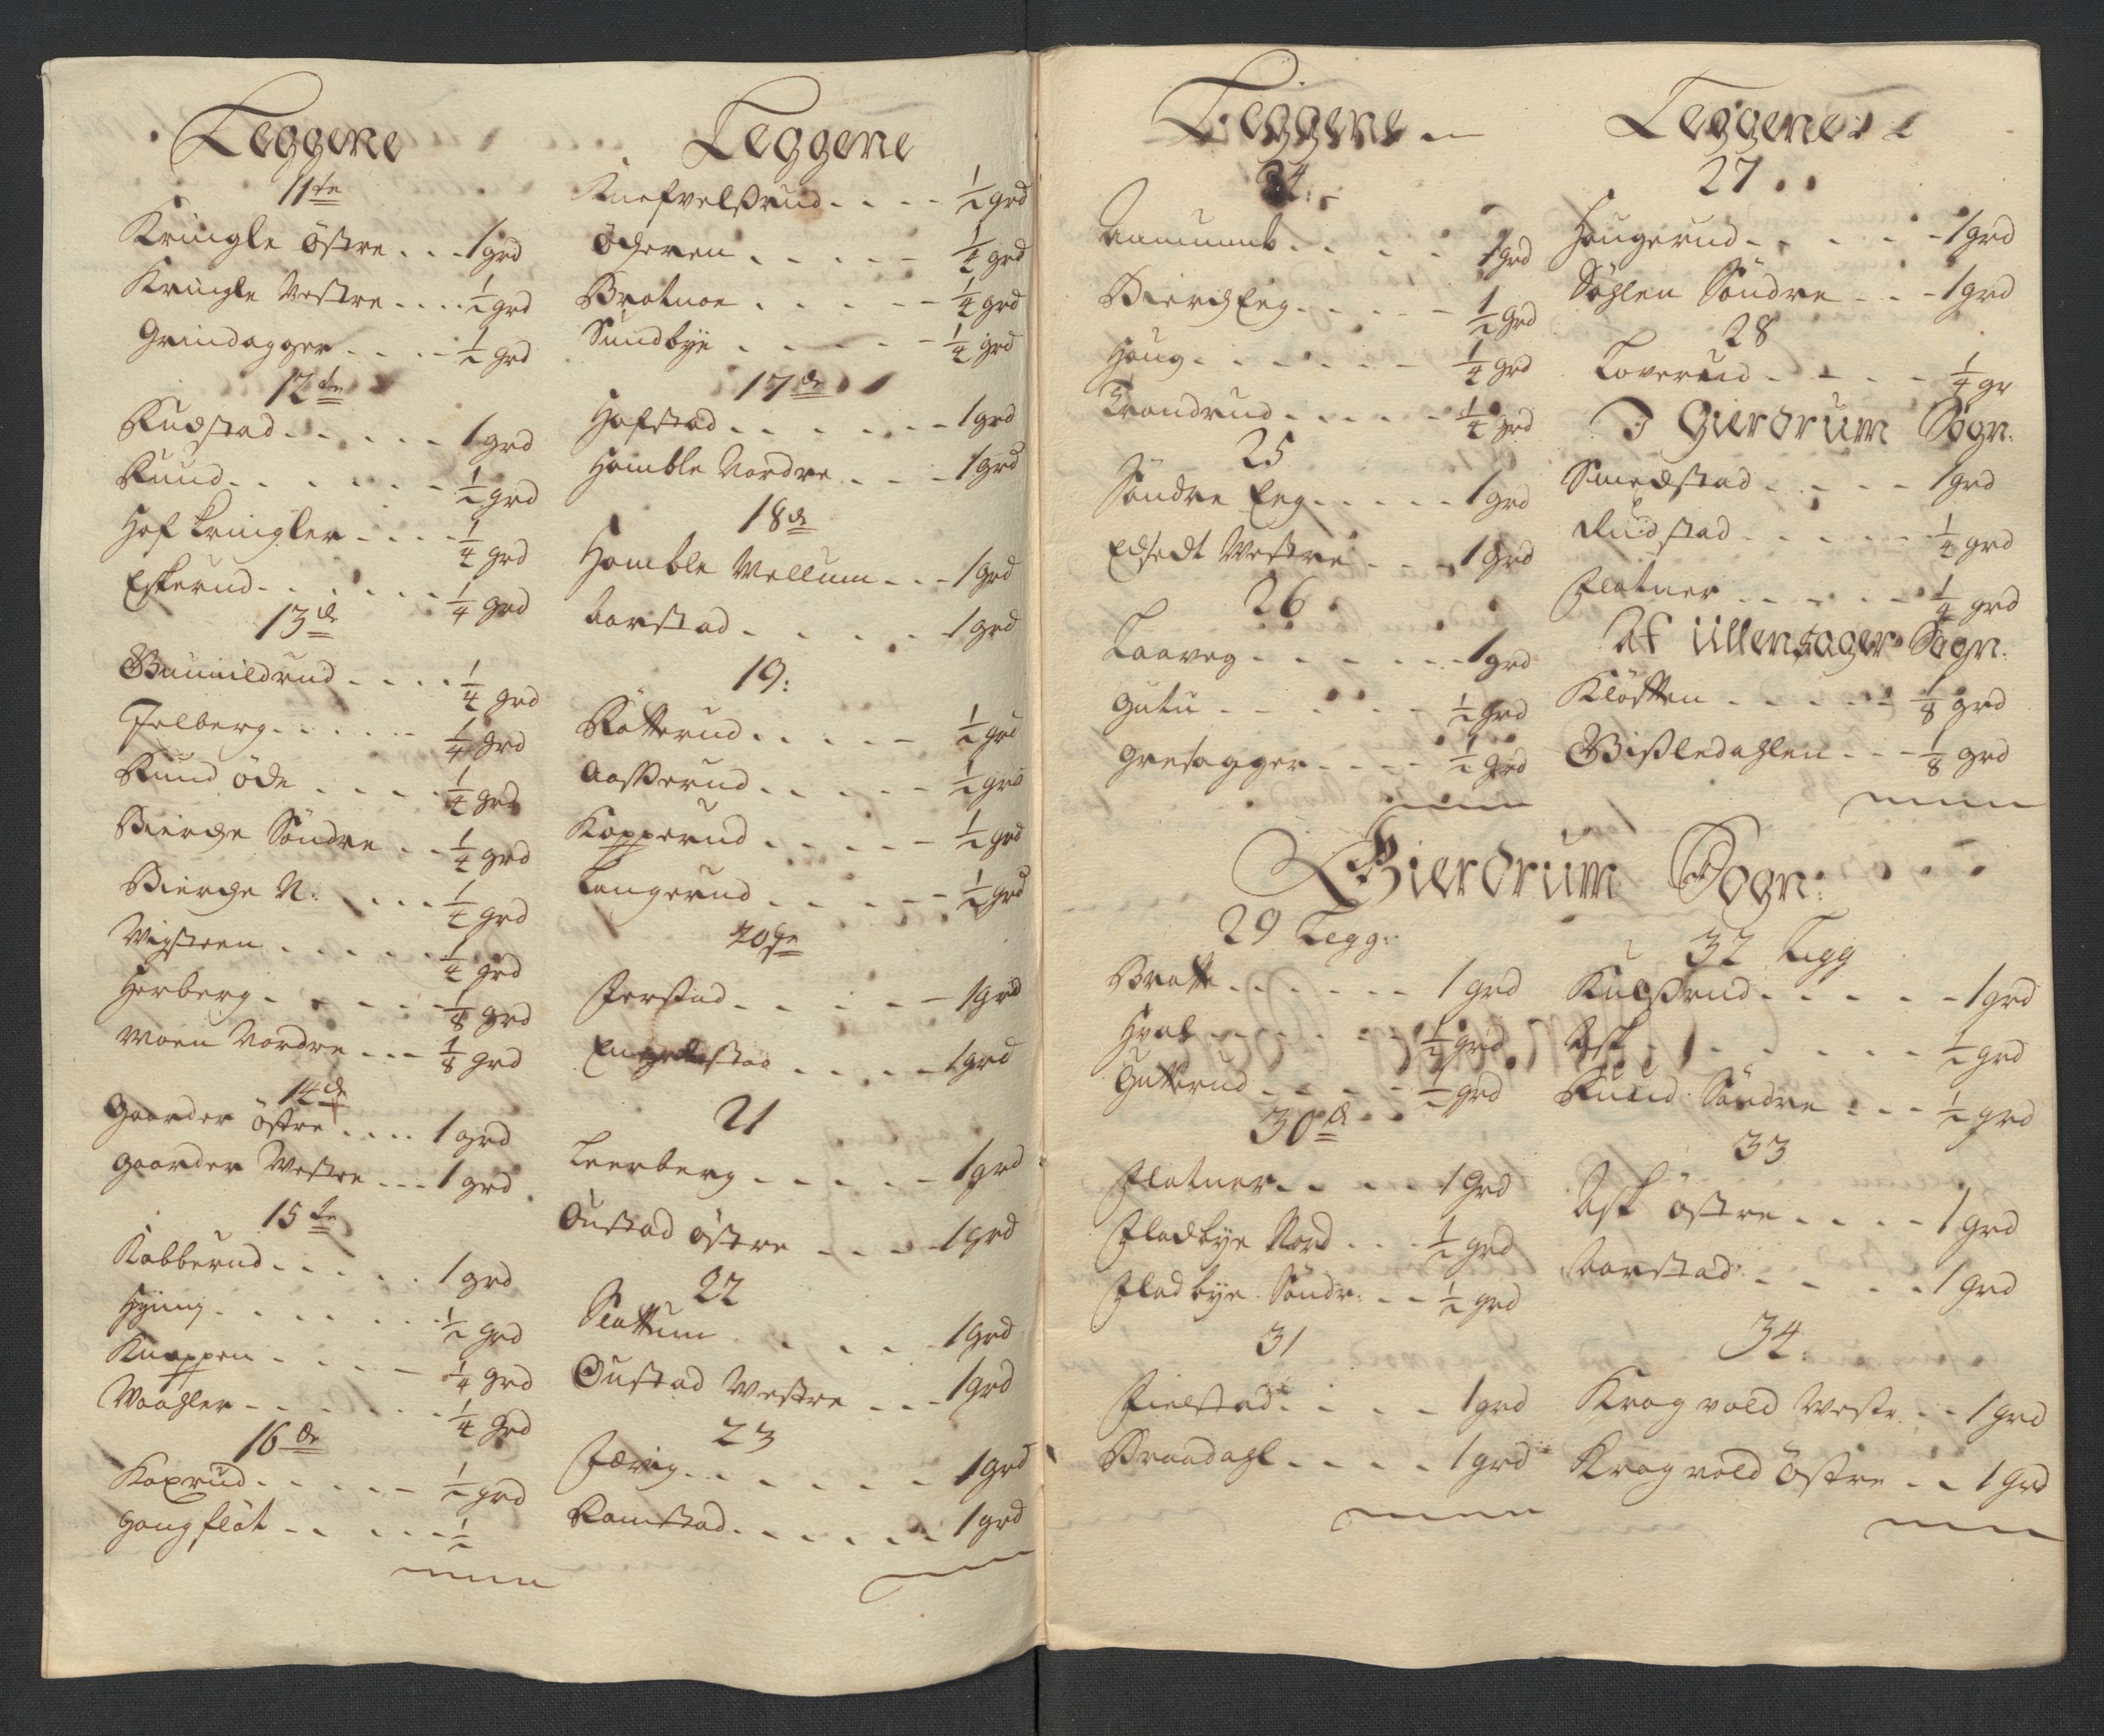 Leggene
11te
Kringle Östre . . . 1 grd
Kringle Vestre . . . . ½ grd
Grindagger . . . . ½ grd
12te
Rudstad . . . . . . 1 grd
Ruud . . . . . . . ½ grd
Hof Kringler . . . . ¼ grd
Eskerud . . . . . . . ¼ grd
13de
Gunnildrud . . . . ¼ grd
Felberg . . . . . . ¼ grd
Ruud öde . . . . ¼ grd
Bierche Söndre . . ¼ grd
Bierche N: . . . ¼ grd
Vigsteen . . . . . . ¼ grd
Herberg . . . . . . ⅛ grd
Moen Nordre . . . ⅛ grd
14de
Gaarder Östre . . . . 1 grd
Gaarder Vestre . . . 1 grd
15te
Kabberud . . . . . . 1 grd
Hÿnng . . . . . . . ½ grd
Knappen . . . . . ¼ grd
Waahler . . . . . . . ¼ grd
16de
Koxrud . . . . . . ½ grd
Haugflöt . . . . . . ½
Leggene
Knefvelsrud . . . . ½ grd
Öheren . . . . . . ¼ grd
Brotnoe . . . . . . ¼ grd
Sundbÿe . . . . . . ¼ grd
17de
Hofstad . . . . . . . 1 grd
Homble Nordre . . . 1 grd
18de
Homble Mellum . . . 1 grd
Aarstad . . . . . . 1 grd
19:
Rötterud . . . . . ½ grd
Aasserud . . . . . . ½ grd
Kopperud . . . . . . ½ grd
Langerud . . . . . . ½ grd
20de
Jerstad . . . . . . 1 grd
Engelstad . . . . . 1 grd
21
Leerberg . . . . . . 1 grd
Oustad Östre . . . . 1 grd
22
Slattum . . . . . . 1 grd
Oustad Westre . . . 1 grd
23
Færig . . . . . . . 1 grd
Ramstad . . . . . . . 1 grd
Leggene
24:
Aamunds . . . . . 1 grd
Bierch Eng . . . . . ½ grd
Houg . . . . . . . ¼ grd
Trondrud . . . . . ¼ grd
25
Söndre Eng . . . . . 1 grd
Edsedt Westre . . . 1 grd
26
Laaveg . . . . . . . 1 grd
Gutu . . . . . . ½ grd
Gresagger . . . . ½ grd
Leggene
27
Haugerud . . . . . . 1 grd
Söhlen Söndre . . . 1 grd
28
Loverud . . . . . ¼ gr
I Gierdrum Sogn:
Smedstad . . . . . 1 grd
Rudstad . . . . . . ¼ grd
Flatner . . . . . . ¼ grd
Af Ullensager Sogn:
Klöfften . . . . . . ⅛ grd
Gissledahlen . . . ⅛ grd
Gierdrum Sogn:
29 Legg:
Bratt . . . . . . . 1 grd
Hval . . . . . . . ½ grd
Gutterud . . . . . ½ grd
30de
Flatner . . . . . 1 grd
Fladbÿe Nord . . . ½ grd
Fladbÿe Söndr: . . ½ grd
31
Fielstad . . . . . 1 grd
Braadahl . . . . . 1 grd
32 Legg
Kulsrud . . . . . . 1 grd
Ask . . . . . . . . ½ grd
Ruud Söndre . . . ½ grd
33
Ask östre . . . . . 1 grd
Aarstad . . . . . . 1 grd
34:
Krogvold Westr . . 1 grd
Krogvold Östre . . 1 grd